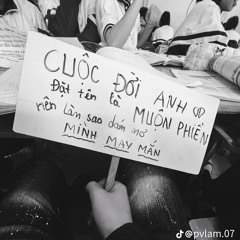 CUỘC ĐỜI ANH
Đặt tên là MUỘN PHIỀN
nên làm sao dám mơ
MÌNH MAY MẮN
@pvlam.07